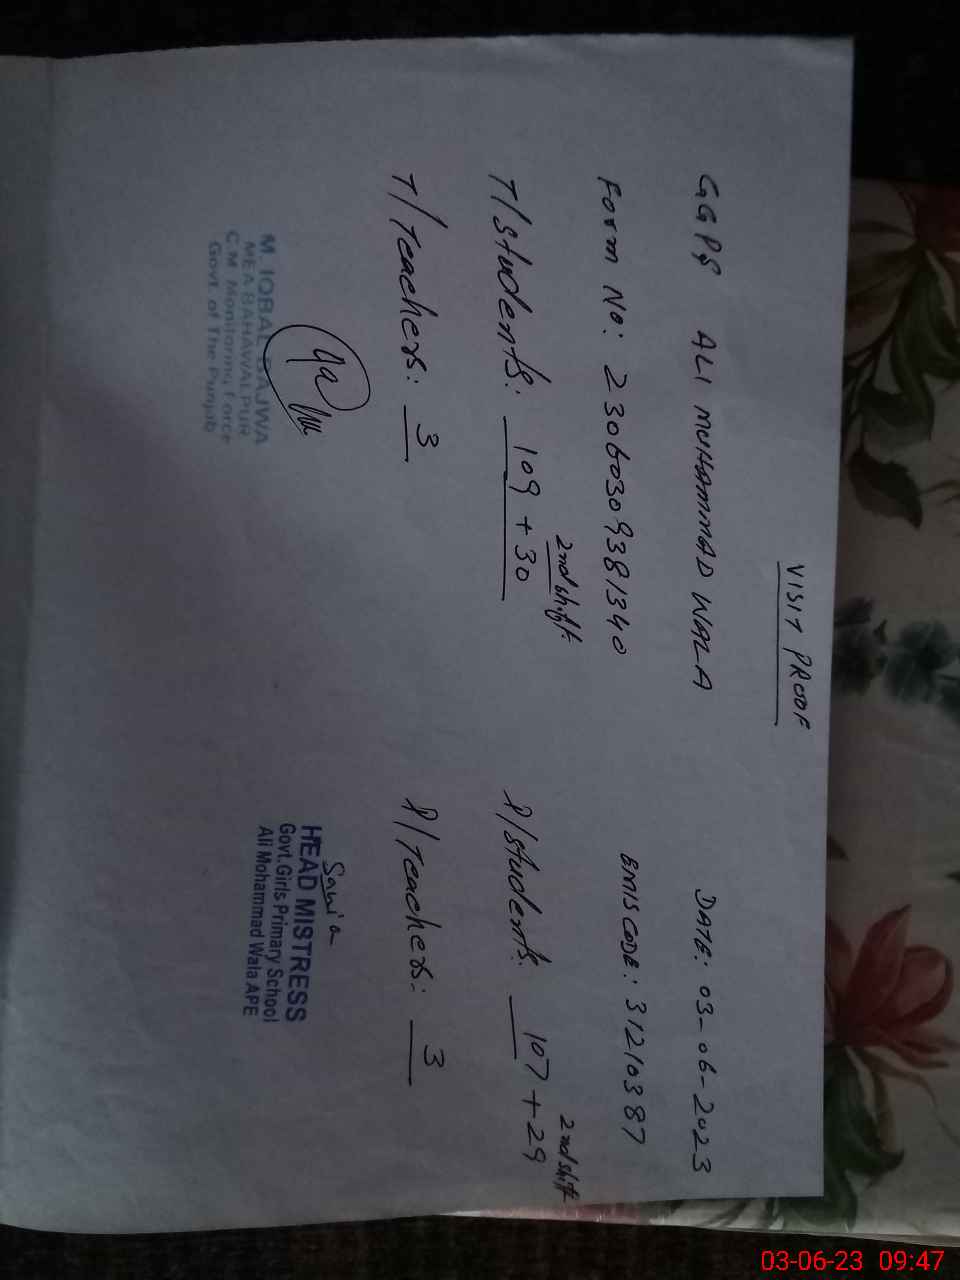 VISIT PROOF
GGPS ALI MUHAMMAD WALA DATE: 03-06-2023
Form No: 23060309381340 EMIS CODE: 31210387
2nd shift 2nd shift
T/students: 109 + 30 P/students: 107 + 29
T/Teachers: 3 P/Teachers: 3
Sawia
HEAD MISTRESS
Govt. Girls Primary School
Ali Mohammad Wala APE
M. IQBAL BAJWA
MEA BAHAWALPUR
C.M Monitoring Force
Govt. of The Punjab
03-06-23 09:47